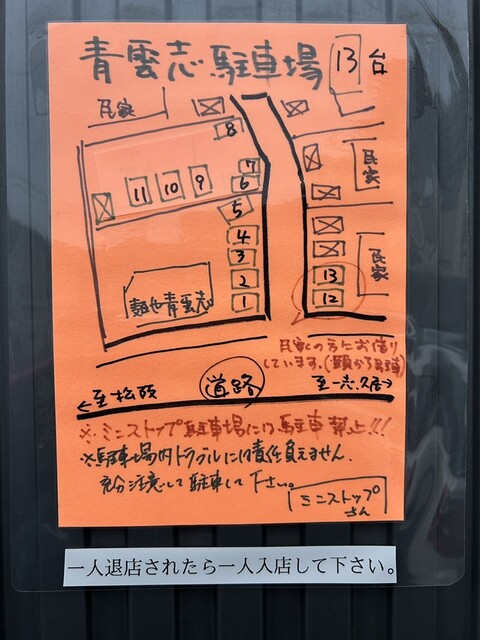 青雲志駐車場 13台
民家
8
7
11 10 9 6
5
4
3
2
1
麺や青雲志
民家
民家
13
12
民家の方にお借り
しています。(頭から駐車)
←至松阪
道路
至一志、久居→
※ミニストップ駐車場には駐車禁止!!!
※駐車場内トラブルには責任負えません。
充分注意して駐車して下さい。
ミニストップ
さん
一人退店されたら一人入店して下さい。